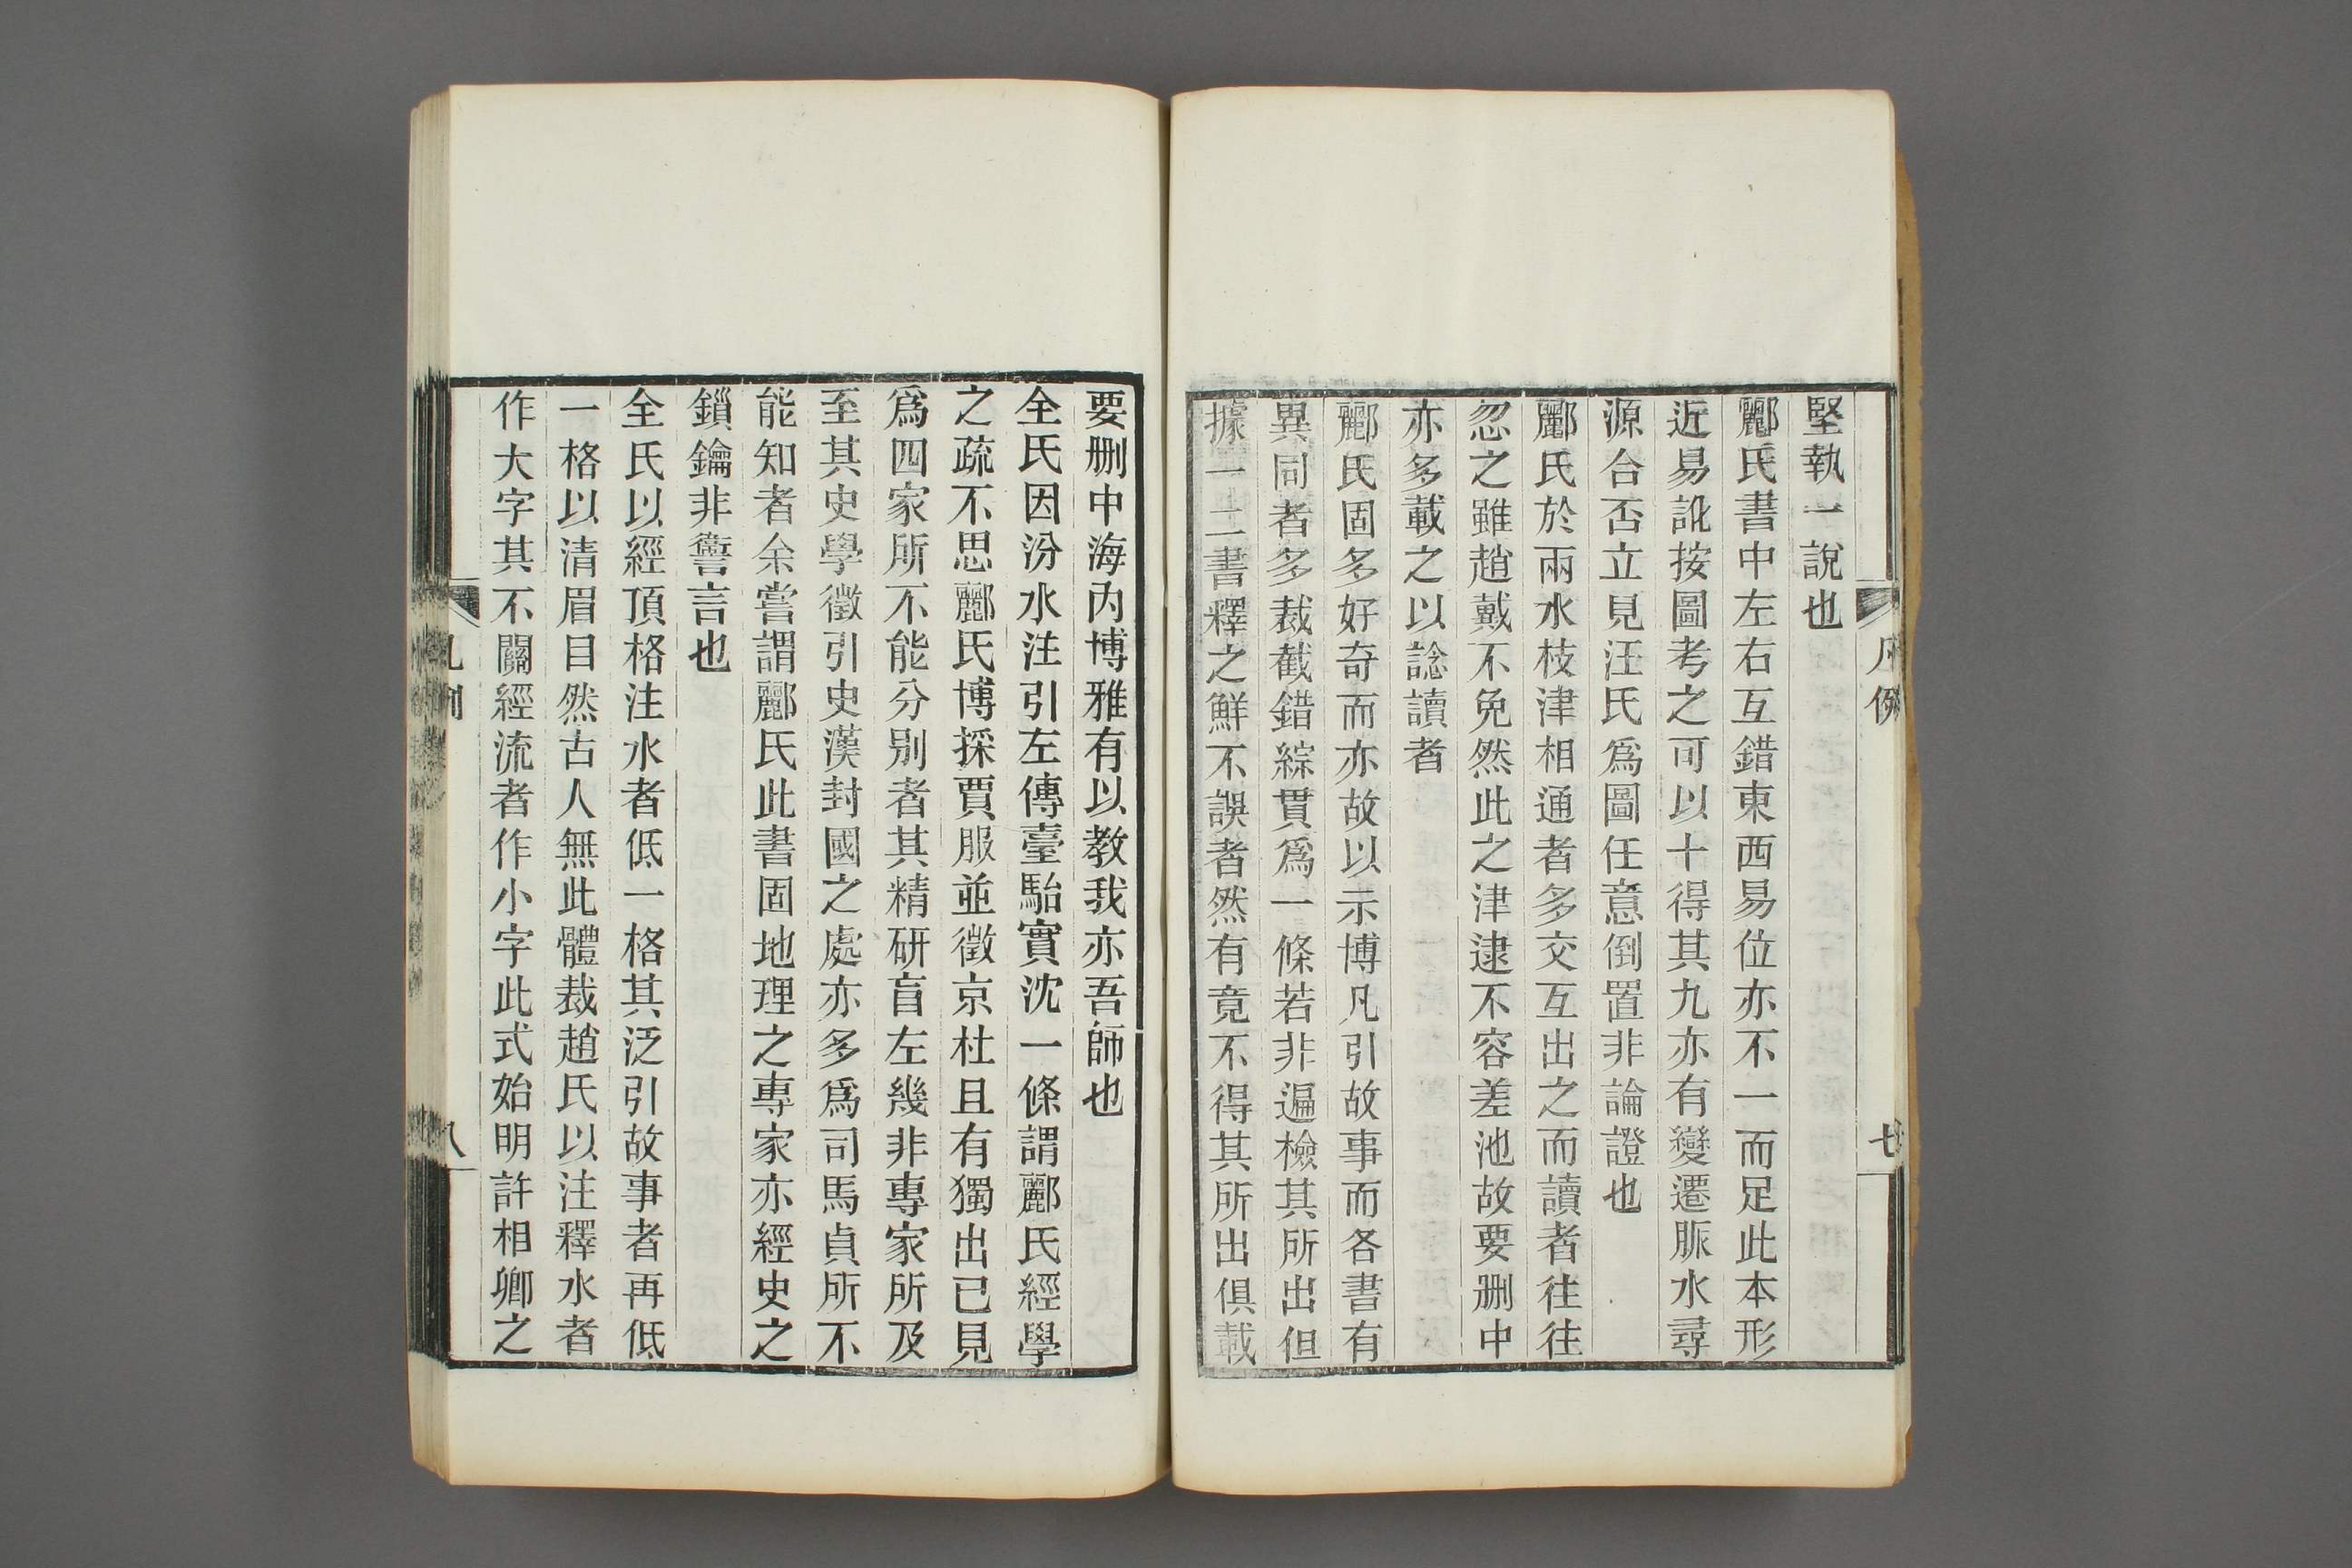 凡例
七
堅執一說也
酈氏書中左右互錯東西易位亦不一而足此本形
近易訛按圖考之可以十得其九亦有變遷脈水尋
源合否立見汪氏爲圖任意倒置非論證也
酈氏於兩水枝津相通者多交互出之而讀者往往
忽之雖趙戴不免然此之津逮不容差池故要刪中
亦多載之以諗讀者
酈氏固多好奇而亦故以示博凡引故事而各書有
異同者多裁截錯綜貫爲一條若非遍檢其所出但
據一二書釋之鮮不誤者然有竟不得其所出俱載
要刪中海內博雅有以教我亦吾師也
全氏因汾水注引左傳臺駘實沈一條謂酈氏經學
之疏不思酈氏博採賈服並徵京杜且有獨出已見
爲四家所不能分別者其精研盲左幾非專家所及
至其史學徵引史漢封國之處亦多爲司馬貞所不
能知者余嘗謂酈氏此書固地理之專家亦經史之
鎖鑰非讆言也
全氏以經頂格注水者低一格其泛引故事者再低
一格以清眉目然古人無此體裁趙氏以注釋水者
作大字其不關經流者作小字此式始明許相卿之
凡例
八